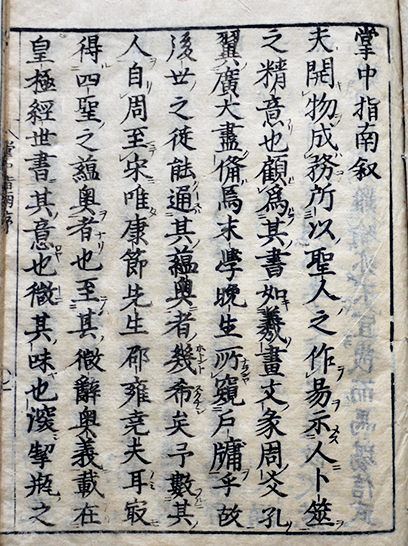 掌中指南叙
夫開物成務所以聖人之作易示人卜筮
之精意也顧爲其書如羲畫文象周爻孔
翼廣大盡備焉末學晚生所窺戶牖乎故
後世之徒能通其蘊奧者幾希矣予數其
人自周至宋唯康節先生邵雍堯夫耳㝡
得四聖之蘊奧者也至其微辭奧義載在
皇極經世書其意也微其味也深挈瓶之